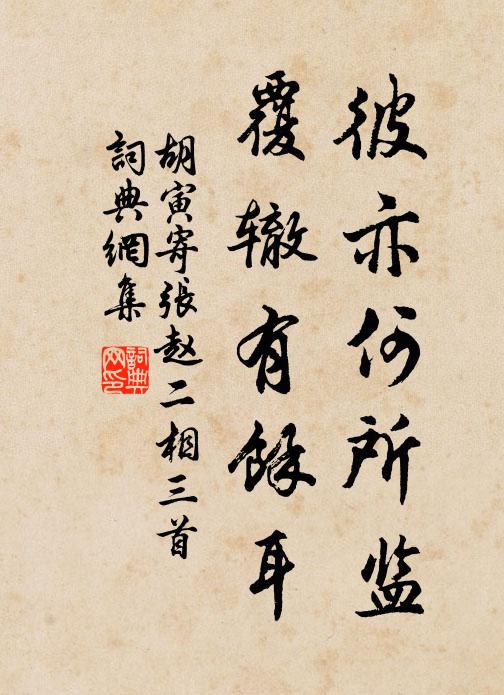 彼亦何所监
覆辙有餘耳
胡寅寄張赵二相三首
詞典網集
詞典网印